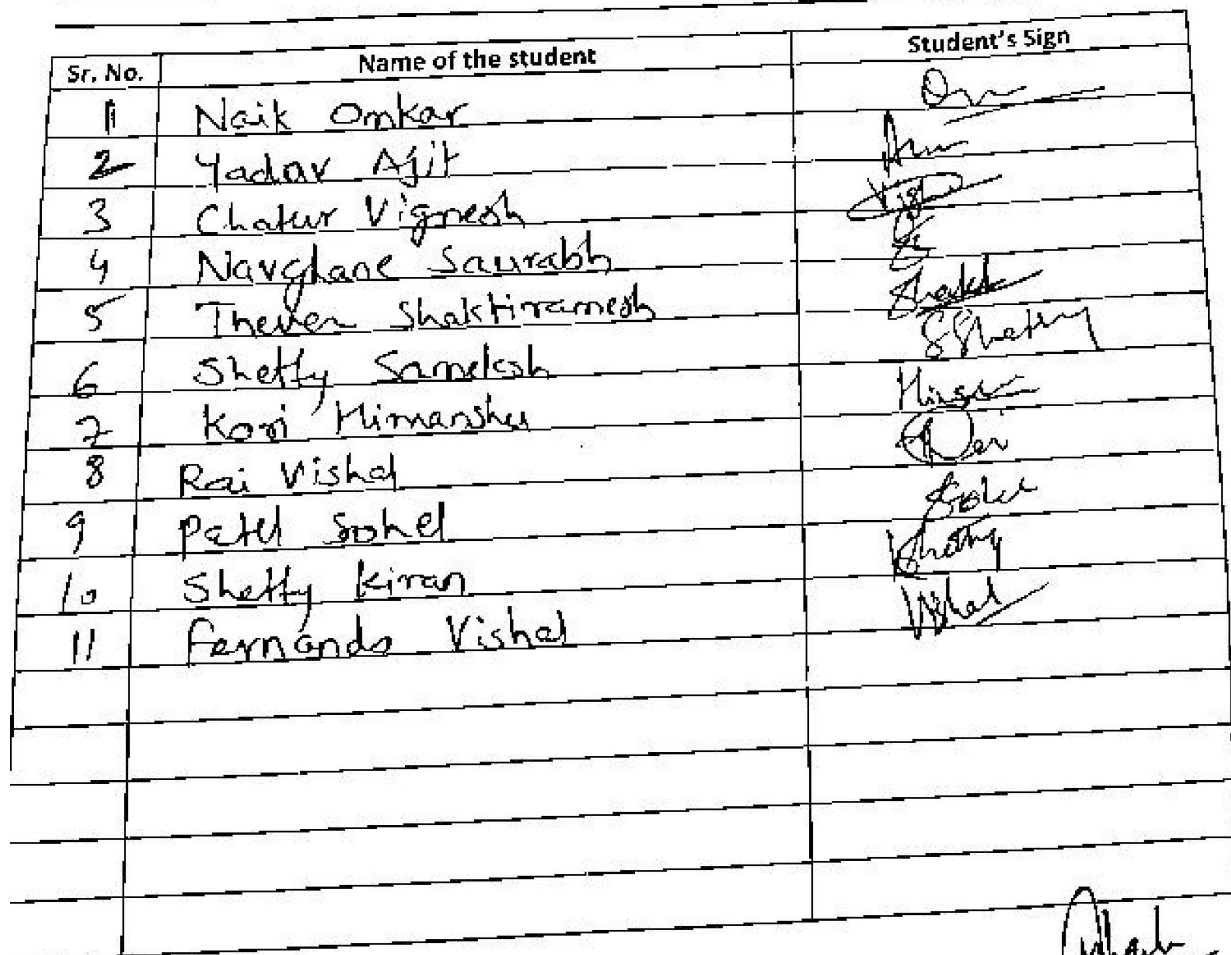 Sr. No. Name of the student Student's Sign
1 Naik Omkar
2 Yadav Ajit
3 Chatur Vignesh
4 Navghane Saurabh
5 Theven Shaktiramesh Shakti
6 Shetty Sameksh SShetty
7 Kori Himanshu
8 Rai Vishal Rai
9 Patel Sohel Sohel
10 Shetty Kiran KShetty
11 Fernando Vishal Vishal